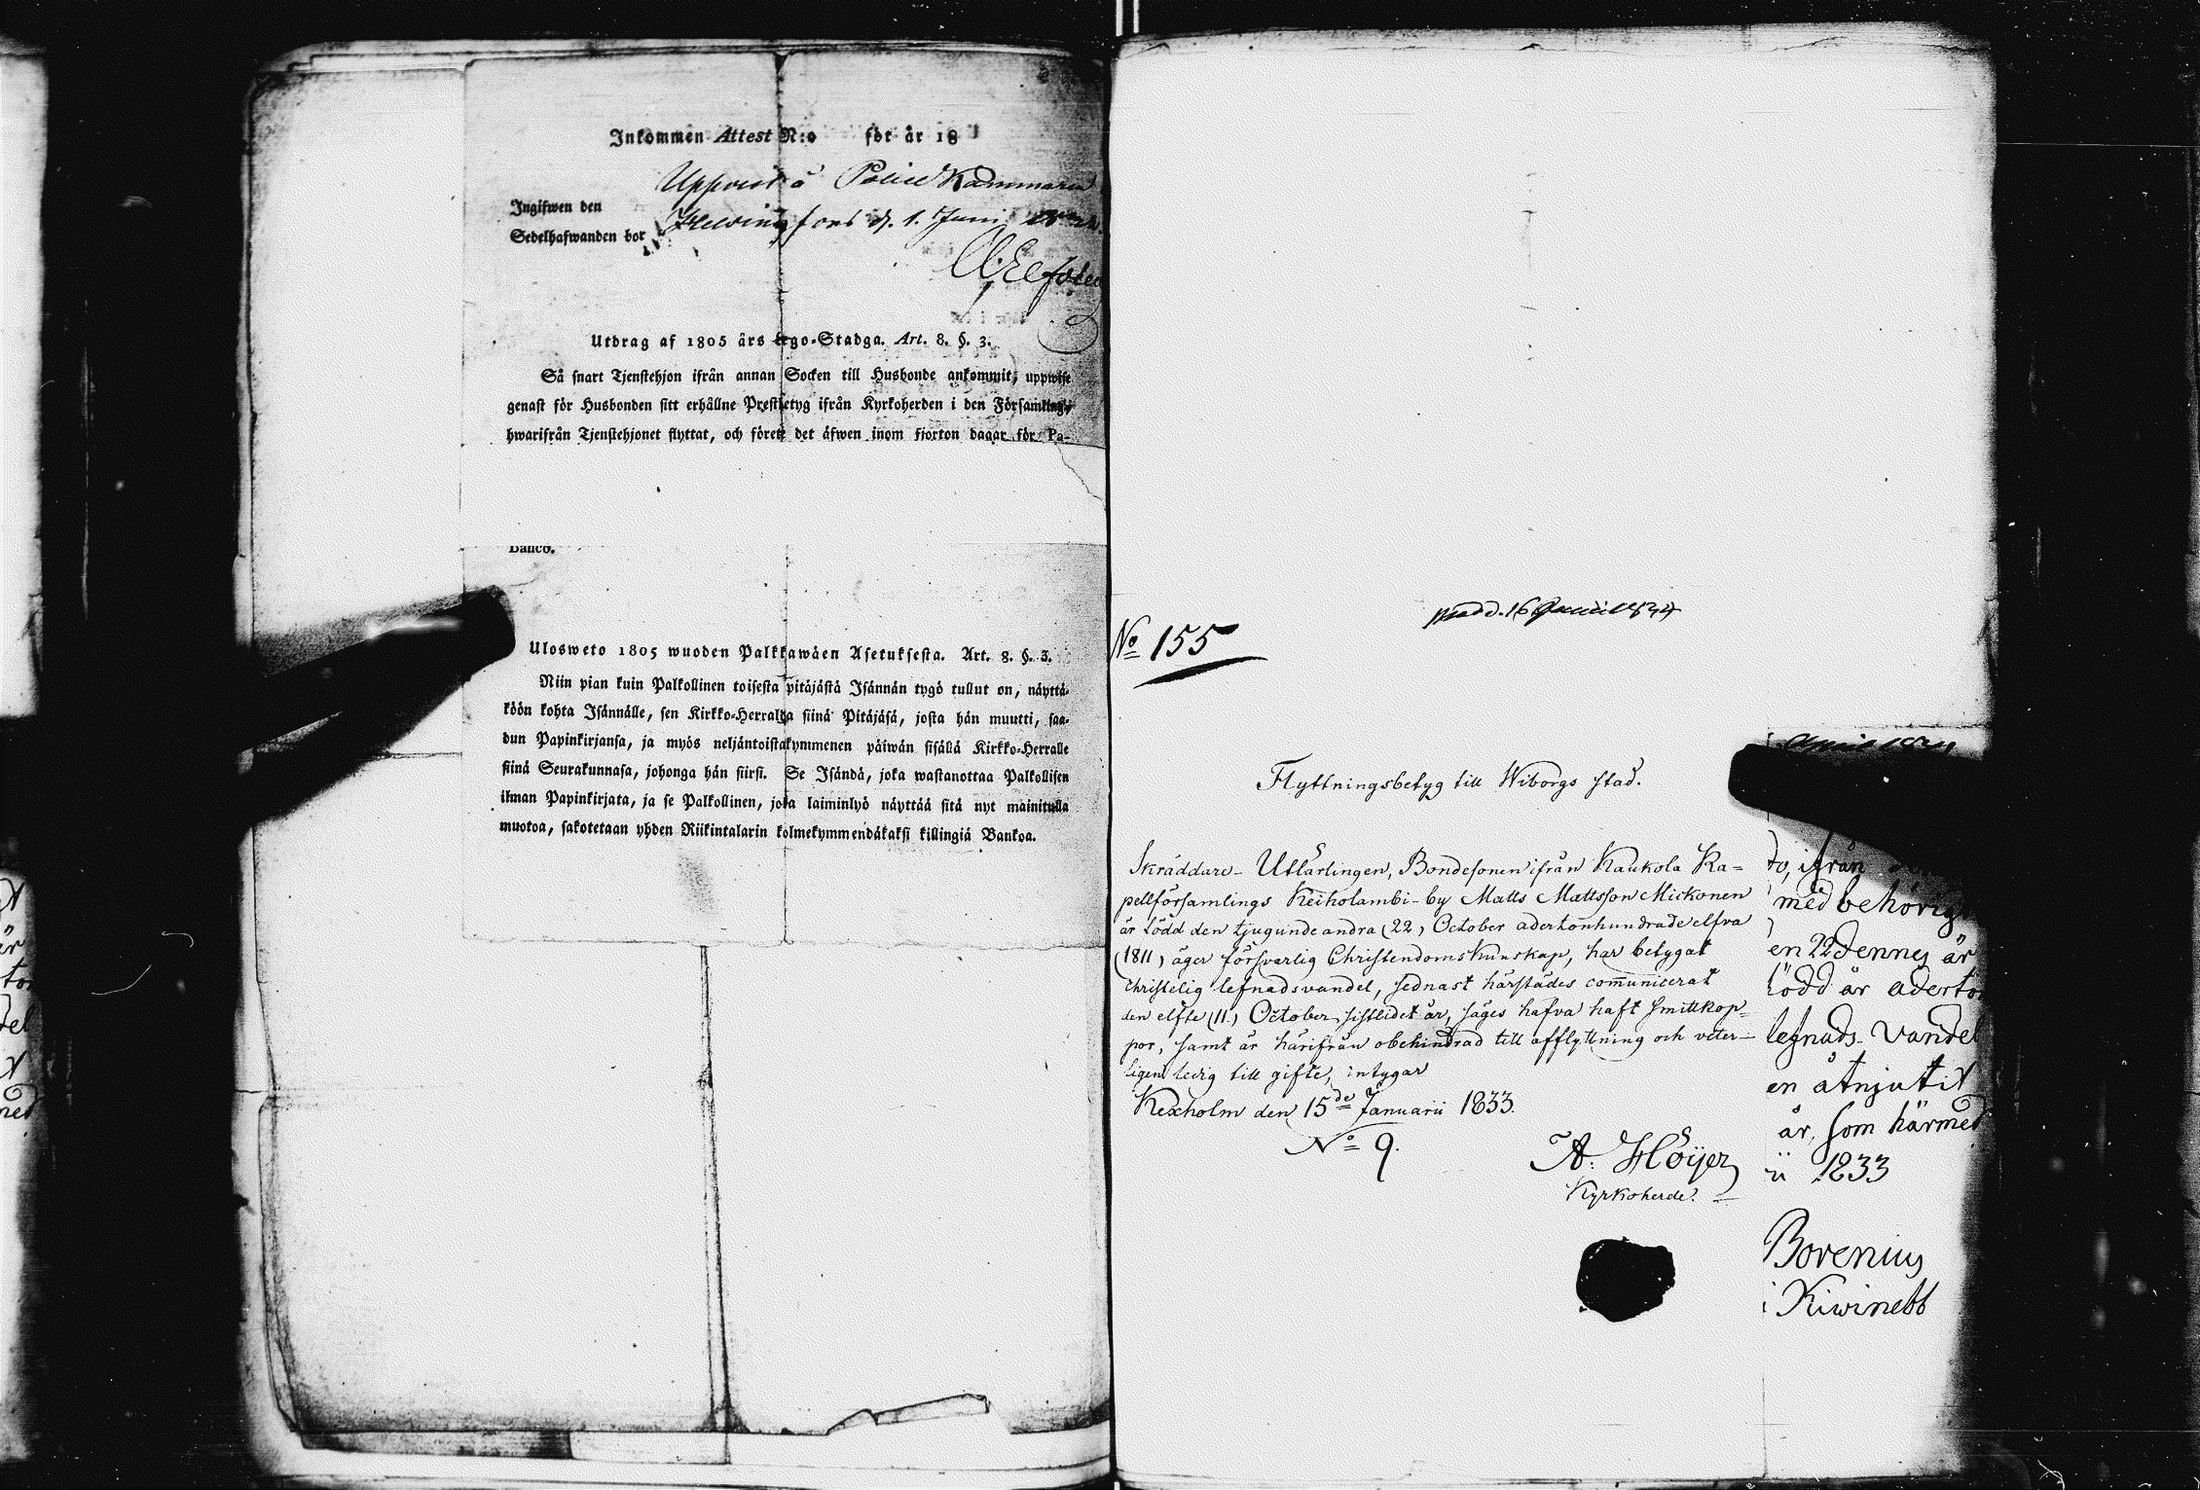 Inkommen Attest N:o för år 18
Uppvist å Police Kammaren
Ingifwen den
Helsingfors d. 1. Juni
Sedelhafwanden bor
Utdrag af 1805 års Lego-Stadga. Art. 8. §. 3.
Så snart Tjenstehjon ifrån annan Socken till Husbonde ankommit, uppwise
genast för Husbonden sitt erhållne Prestbetyg ifrån Kyrkoherden i den Församling,
hwarifrån Tjenstehjonet flyttat, och förete det äfwen inom fjorton dagar för Pa-
Banco.
Ulosweto 1805 wuoden Palkkawäen Asetuksesta. Art. 8. §. 3.
Niin pian kuin Palkollinen toisesta pitäjästä Isännän tygö tullut on, näyttä-
köön kohta Isännälle, sen Kirkko-Herralda siinä Pitäjäsä, josta hän muutti, saa-
dun Papinkirjansa, ja myös neljäntoistakymmenen päiwän sisällä Kirkko-Herralle
siinä Seurakunnasa, johonga hän siirsi. Se Isändä, joka wastanottaa Palkollisen
ilman Papinkirjata, ja se Palkollinen, joka laiminlyö näyttää sitä nyt mainitulla
muotoa, sakotetaan yhden Riikintalarin kolmekymmendäkaksi killingiä Bankoa.
No 155
Flyttningsbetyg till Wiborgs stad.
Skräddare-Utlärlingen, Bondesonen ifrån Kaukola Ka=
pellförsamlings Keiholambi-by Matts Mattsson Mickonen
är född den tjugunde andra (22) October adertonhundrade elfva
(1811) äger försvarlig Christendoms Kunskap, har betygat
christelig lefnadsvandel, sednast härstädes com̄unicerat
den elfte (11.) October sistlidet år, säges hafva haft Smittkop=
por, samt är härifrån obehindrad till afflyttning och veter-
ligen ledig till gifte, intygar
Kexholm den 15de Januarii 1833.
No 9.
A: Höijer
Kyrkoherde.
to, ifrån
med behörig
en 22 dennes är
född år aderto
lefnads-vandel
en åtnjutit
år, som härmed
ii 1833
Borenius
i Kiwinebb